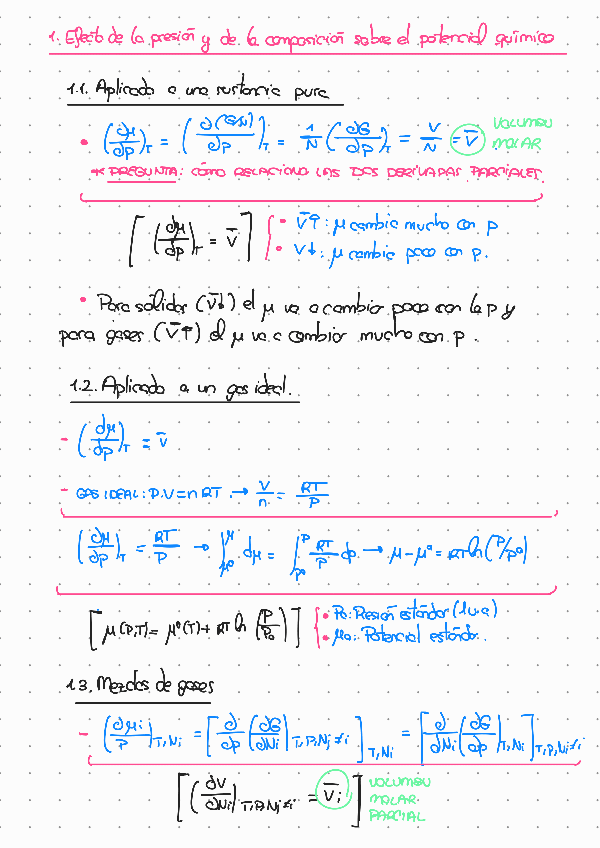 1. Efecto de la presión y de la composición sobre el potencial químico
1.1. Aplicado a una sustancia pura
• (∂μ/∂p)_T = (∂(G/N)/∂p)_T = 1/N (∂G/∂p)_T = V/N = V̄ VOLUMEN MOLAR
* PREGUNTA: CÓMO RELACIONO LAS DOS DERIVADAS PARCIALES.
[(∂μ/∂p)_T = V̄] { • V̄↑: μ cambia mucho con p
• V↓: μ cambia poco con p.
• Para sólidos (V̄↓) el μ va a cambiar poco con la p y
para gases (V̄↑) el μ va a cambiar mucho con p.
1.2. Aplicado a un gas ideal.
- (∂μ/∂p)_T = V̄
- GAS IDEAL: P.V = n RT. → V/n = RT/P
(∂μ/∂p)_T = RT/P → ∫_μ°^μ dμ = ∫_p°^p RT/P dp → μ - μ° = RT ln (P/P°)
[μ(P,T) = μ°(T) + RT ln (P/P₀)] { • P₀: Presión estándar (1 ua)
• μ₀: Potencial estándar.
1.3. Mezclas de gases
- (∂μi/P)_T,Ni = [∂/∂p (∂G/∂Ni)_T,P,Nj≠i]_T,Ni = [∂/∂Ni (∂G/∂p)_T,Ni]_T,P,Nj≠i
[(∂V/∂Ni)_T,P,Nj≠i = V̄i] VOLUMEN MOLAR PARCIAL